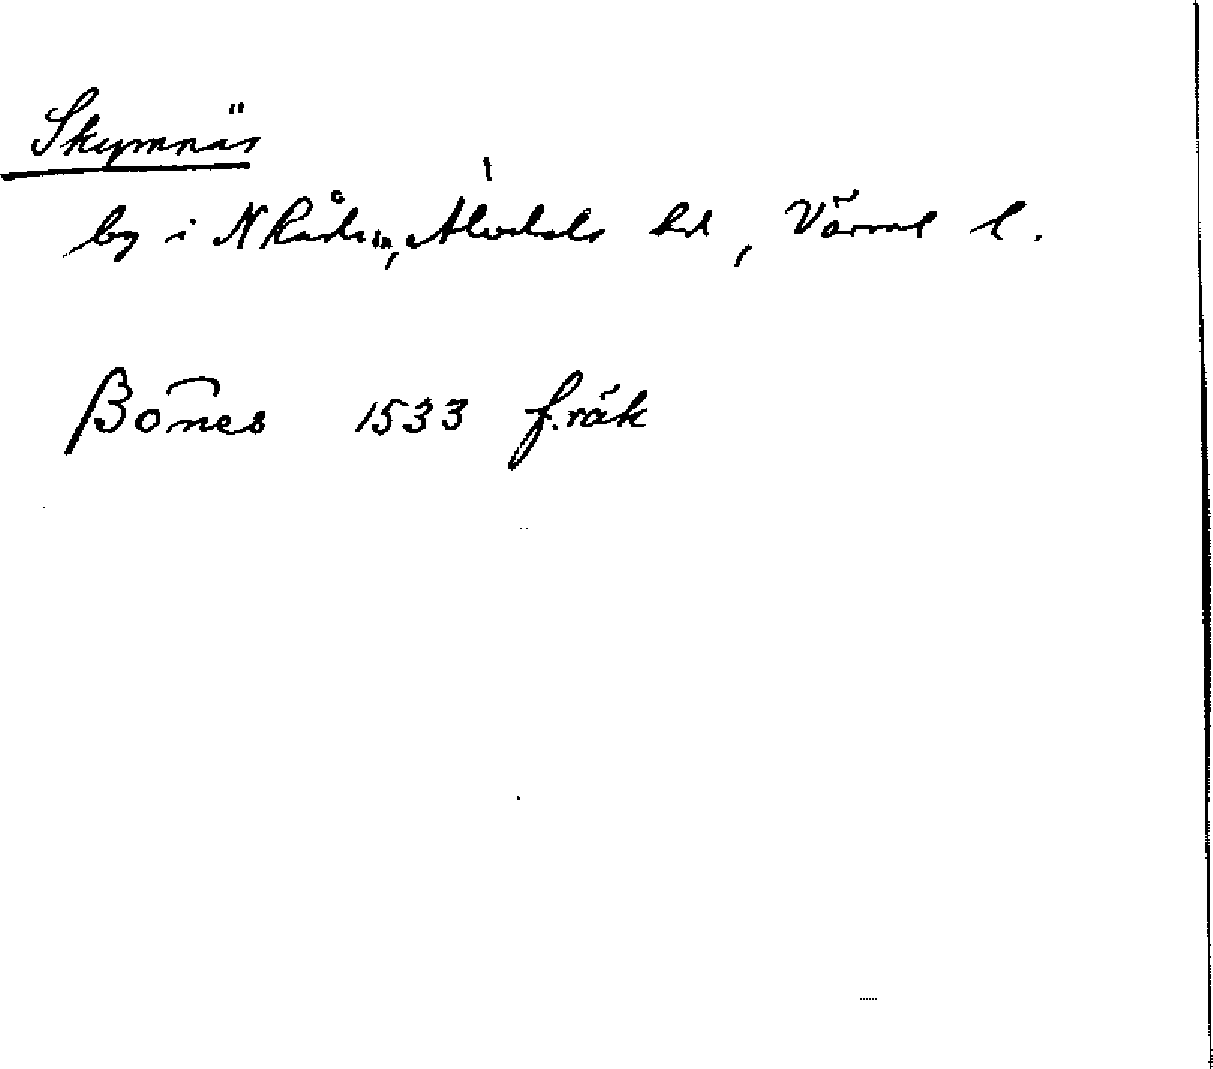 Skymnäs
by i N Råda sn, Älvdals hd, Värml l.
Bones 1533 f. räk